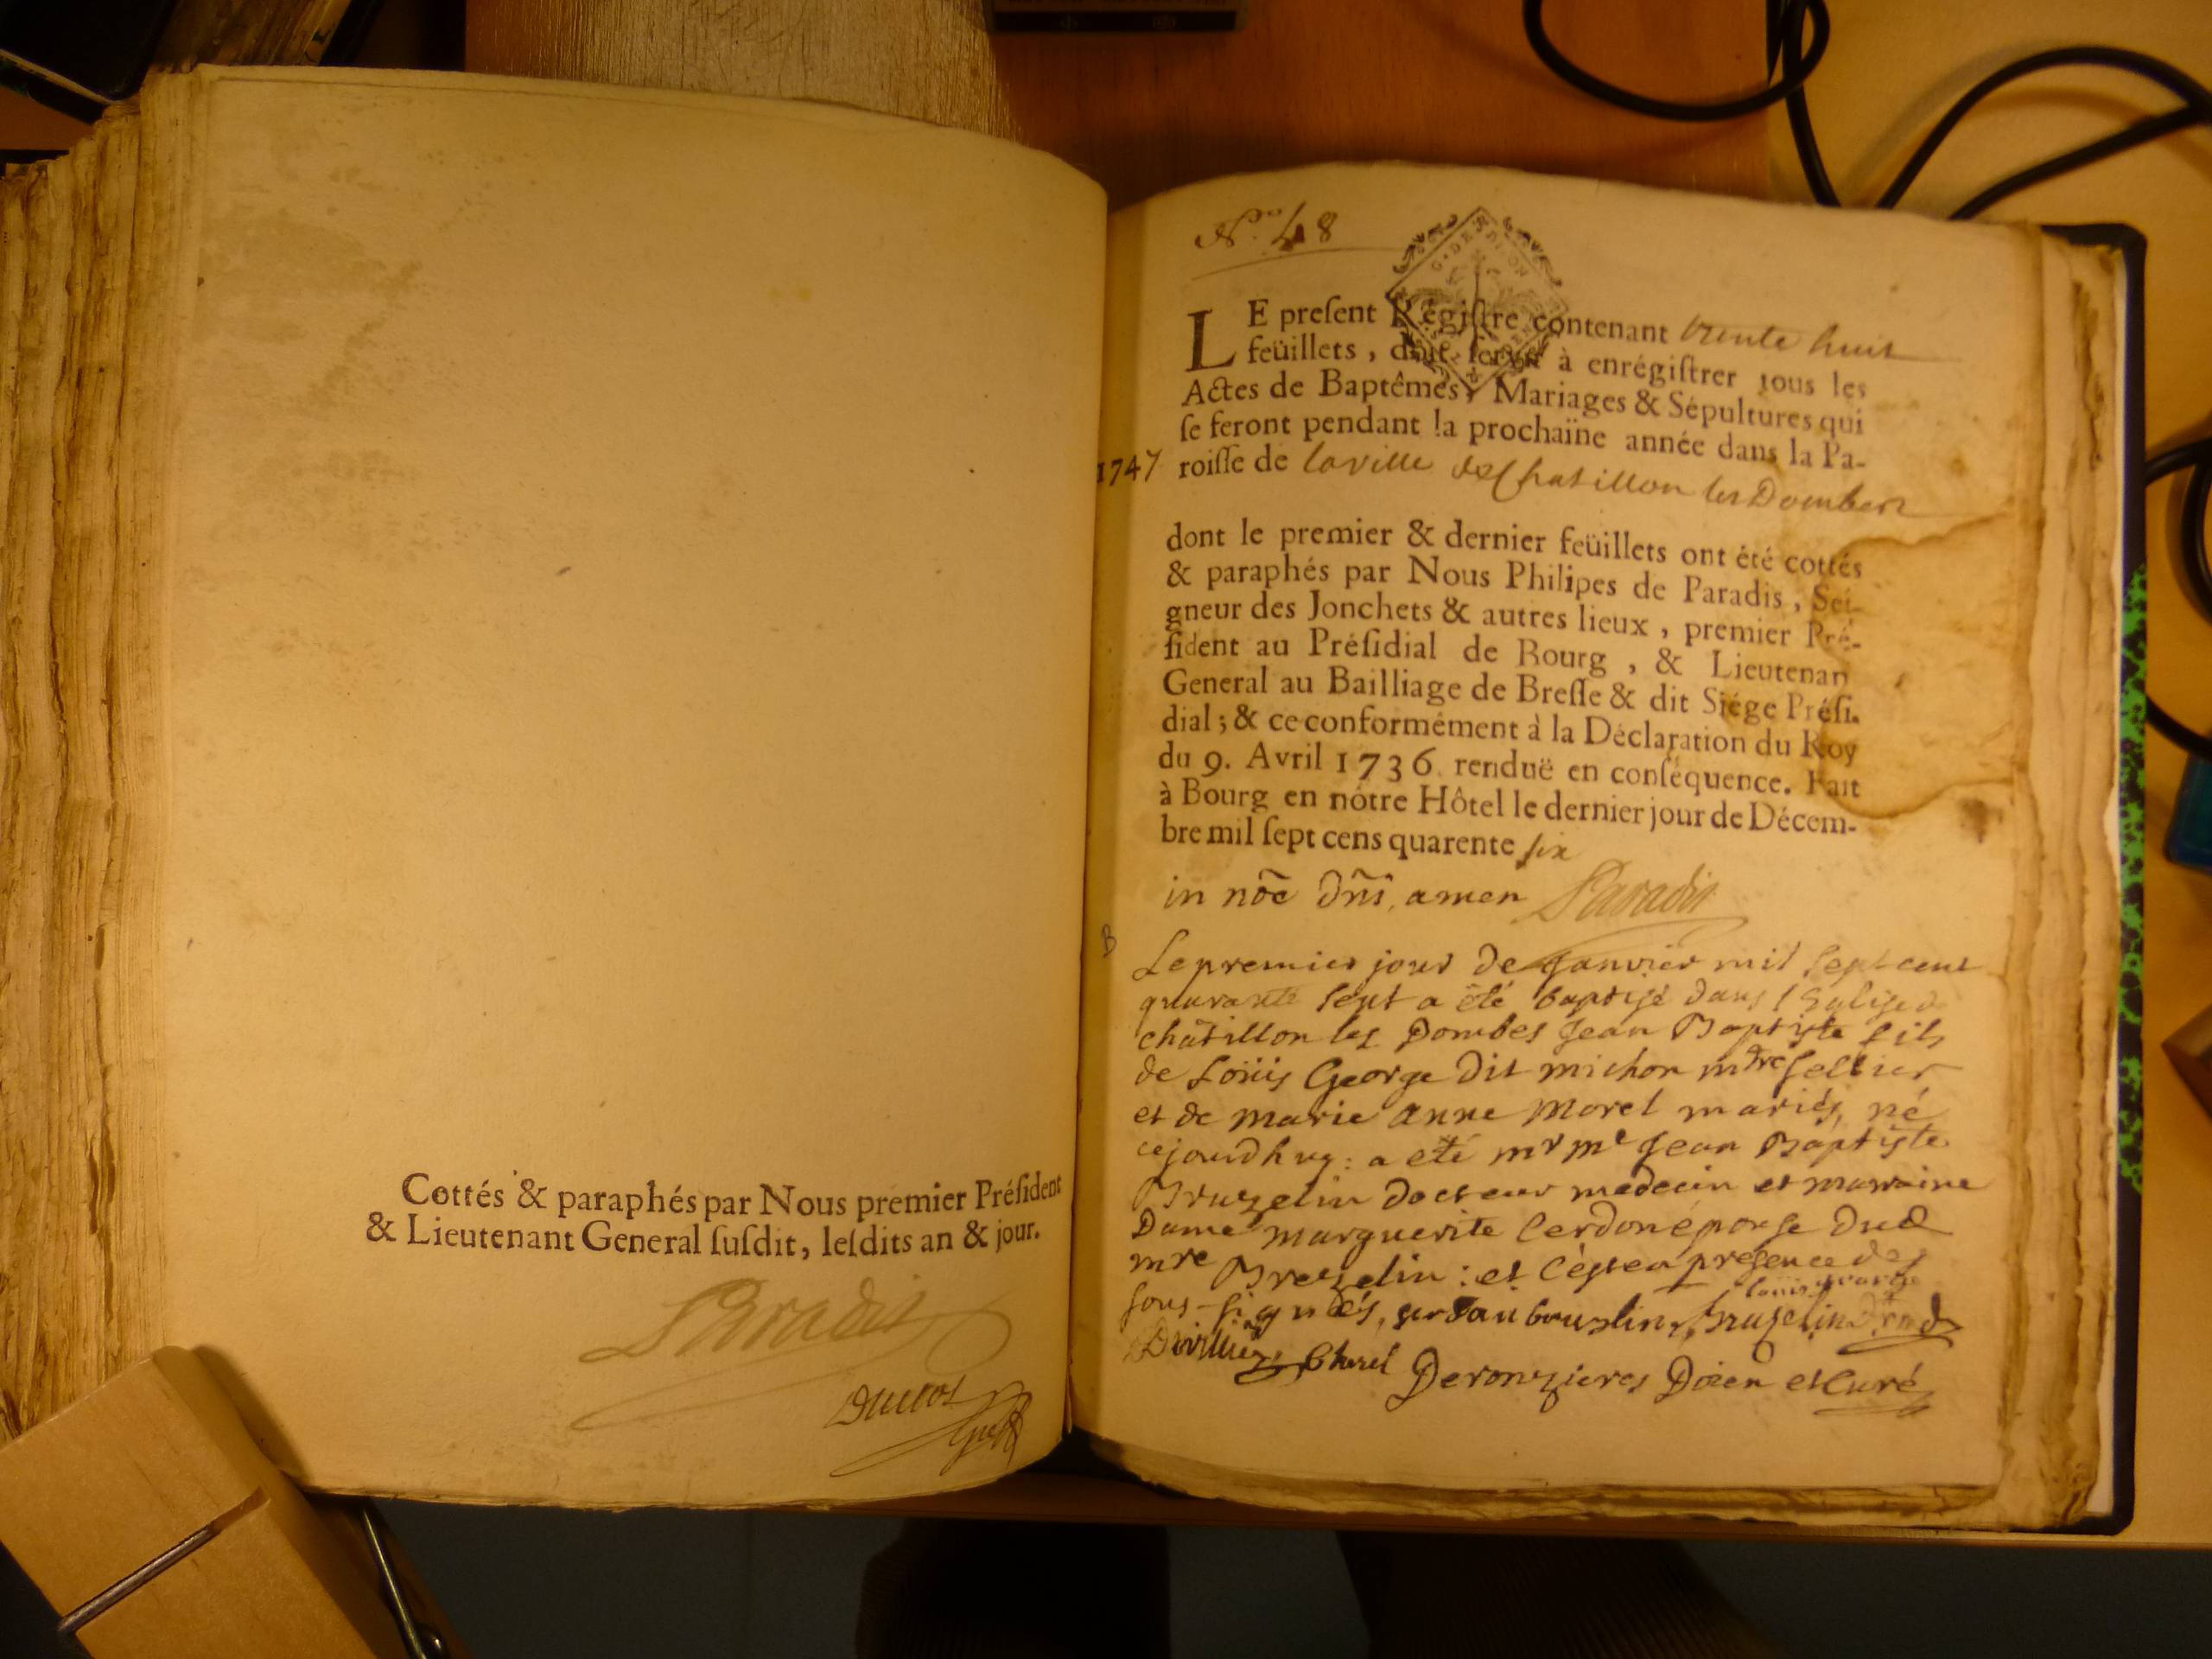 Cottés & paraphés par Nous premier Préſident
& Lieutenant General ſuſdit, leſdits an & jour.
Paradis
N.º 48
G. DE DIJON
LE preſent Régiſtre contenant trente huit
feüillets, doit ſervir à enrégiſtrer tous les
Actes de Baptêmes, Mariages & Sépultures qui
ſe feront pendant la prochaine année dans la Pa-
1747 roiſſe de la ville de Chatillon les Dombes
dont le premier & dernier feüillets ont été cottés
& paraphés par Nous Philipes de Paradis, Sei-
gneur des Jonchets & autres lieux, premier Pré-
ſident au Préſidial de Bourg, & Lieutenan
General au Bailliage de Breſſe & dit Siége Préſi-
dial; & ce conformément à la Déclaration du Roy
du 9. Avril 1736. renduë en conſéquence. Fait
à Bourg en nôtre Hôtel le dernier jour de Décem-
bre mil ſept cens quarente six
in nõe Dñi, amen Paradis
B
Le premier jour de Janvier mil sept cent
quarante sept a été baptisé dans l'Eglise d
châtillon les Dombes Jean Baptiste fils
de Loüis George dit michon mtre sellier
et de marie anne morel mariés, né
cejourdhuy: a été mr me Jean Baptiste
Bruzelin docteur medecin et marraine
Dame marguerite Cerdon épouse dud
mre Bruzelin: et c'est en présence des
sous-signés, louis george
Churel Deronzieres Doien et Curé